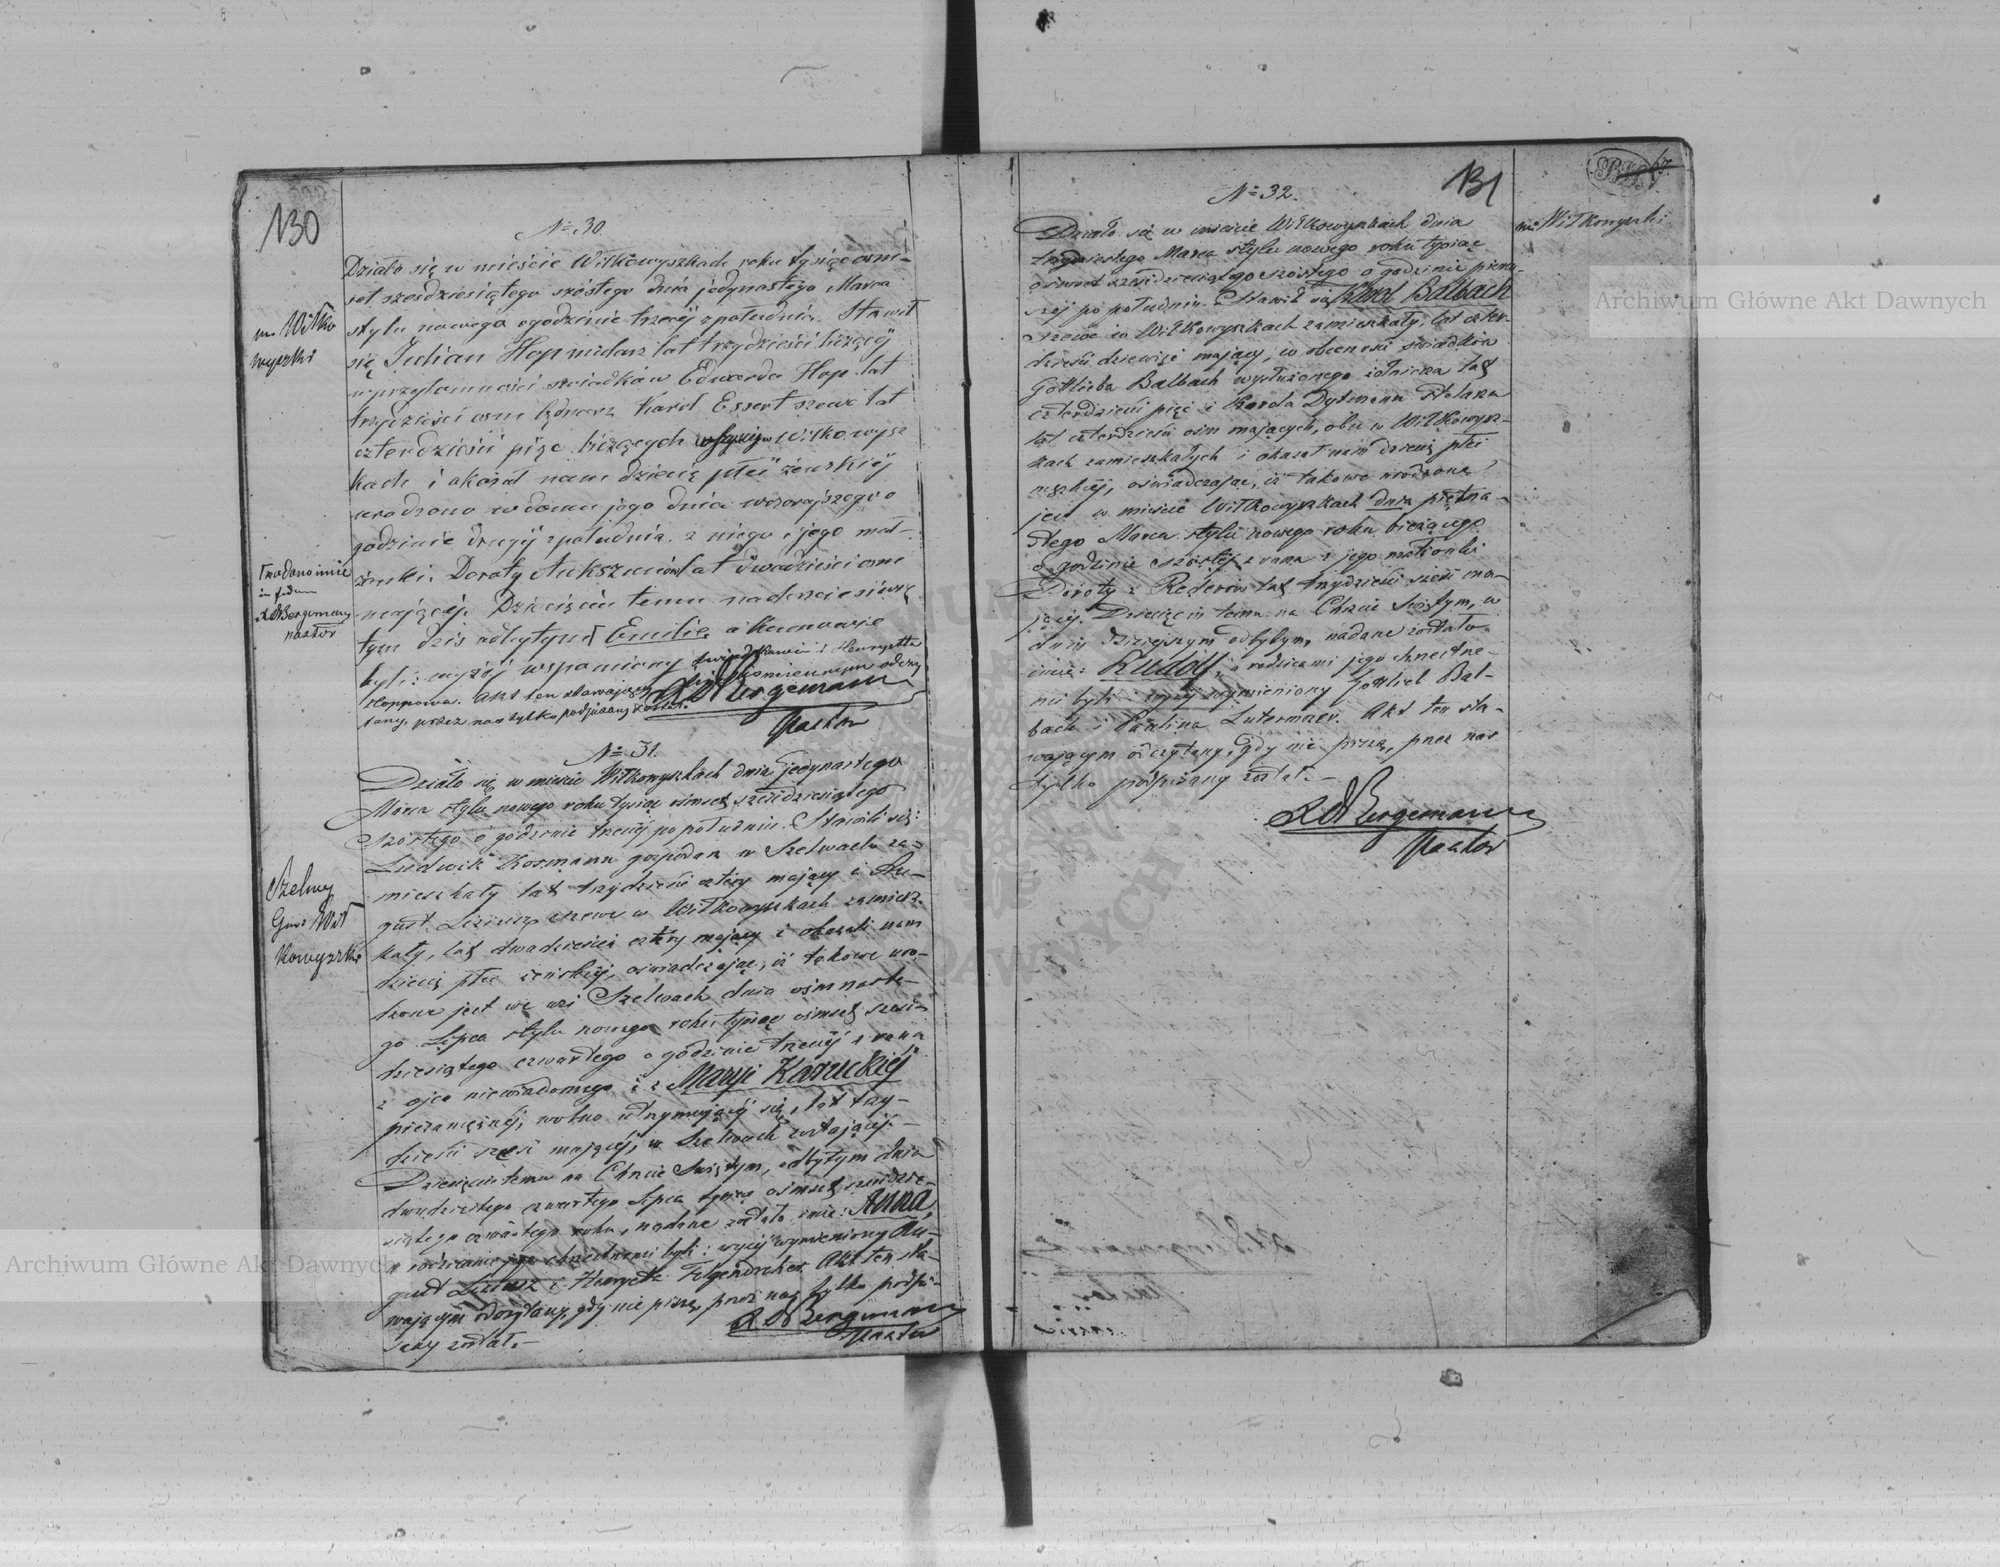 130
№ 30
m. Wiłko
wyszki
Działo się w mieście Wiłkowyszkach roku tysiąc ośm-
set sześdziesiątego szóstego dnia jedynastego Marca
stylu nowego o godzinie trzeciéj z południa. Stawił
się Julian Hop mularz lat trzydzieści liczący
w przytomności świadków Edwarda Hop lat
trzydzieści osm i Karol Essert szewc lat
czterdzieści pięc liczących w Wiłkowysz
kach i okazał nam dziecię płci żeńskiéj
urodzone w domu jego dnia wczorajszego o
godzinie drugiéj z południa z niego i jego mał-
żonki Doroty lat dwadzieścia osm
mającéj. Dziecięciu temu na chrzcie świę
tym dziś odbytym Emilia a kumowie
byli: wyżéj wspomniony i Henryetta
Hoppowa. Akt ten stawającym odczy
tany przez nas tylko podpisany został.
nadano imie
in fidem
Bergemann
pastor
Bergemann
Pastor
№ 31.
Szelwy
Gm. Wił
kowyszki
Działo się w mieście Wiłkowyszkach dnia jedynastego
Marca stylu nowego roku tysiąc ośmset sześćdziesiątego
szóstego o godzinie trzeciéj po południu. Stawili się:
Ludwik Kosmann gospodarz w Szelwach za-
mieszkały lat trzydzieści cztéry mający i Au-
gust szewc w Wiłkowyszkach zamiesz-
kały, lat dwadzieścia cztéry mający i okazali nam
dziecię płci żeńskiéj, oświadczając, iż takowe uro-
dzone jest we wsi Szelwach dnia ośmnaste-
go Lipca stylu nowego roku tysiąc ośmset sześć-
dziesiątego czwartego o godzinie trzeciéj z rana
z ojca niewiadomego i z Maryi Kazuckiéj
niezamężnéj, wolno utrzymującéj się, lat trzy-
dzieści sześć mającéj, w Szelwach zostającéj.-
Dziecięciu temu na Chrzcie Świętym, odbytym dnia
dwudziestego czwartego Lipca tysiąc ośmset sześćdzie-
siątego czwartego roku, nadane zostało imie: Anna,
a rodzicami chrzestnemi byli: wyżéj wymieniony Au-
gust i Henryeta Felgendreher. Akt ten sta-
wającym odczytany, gdy nie piszą, przez nas tylko podpi-
sany został.-
Bergemann
Pastor
131
№ 32.
m. Wiłkowyszki
Działo się w mieście Wiłkowyszkach dnia
trzydziestego Marca stylu nowego roku tysiąc
ośmset sześćdziesiątego szóstego o godzinie pierw-
széj po południu. Stawił się Karol Balbach
szewc w Wiłkowyszkach zamieszkały, lat czter-
dzieści dziewięć mający, w obecności świadków
Gottlieba Balbach wysłużonego żołnierza lat
czterdzieści pięć i Karola Dytmann stolarza
lat czterdzieści ośm mających, obu w Wiłkowysz-
kach zamieszkałych i okazał nam dziecię płci
męzkiéj, oświadczając, iż takowe urodzone
jest w mieście Wiłkowyszkach dnia piętna-
stego Marca stylu nowego roku bieżącego
o godzinie szóstéj z rana z jego małżonki
Doroty z Rederów lat trzydzieści sześć ma-
jącéj. Dziecięciu temu na Chrzcie Świętym, w
dniu dzisiejszym odbytym, nadane zostało
imie: Rudolf, a rodzicami jego chrzestne-
mi byli: wyżéj wymieniony Gottlieb Bal-
bach i Paulina Lutermozer. Akt ten sta-
wającym odczytany, gdy nie piszą, przez nas
tylko podpisany został.-
Bergemann
Pastor
Archiwum Główne Akt Dawnych
Archiwum Główne Akt Dawnych